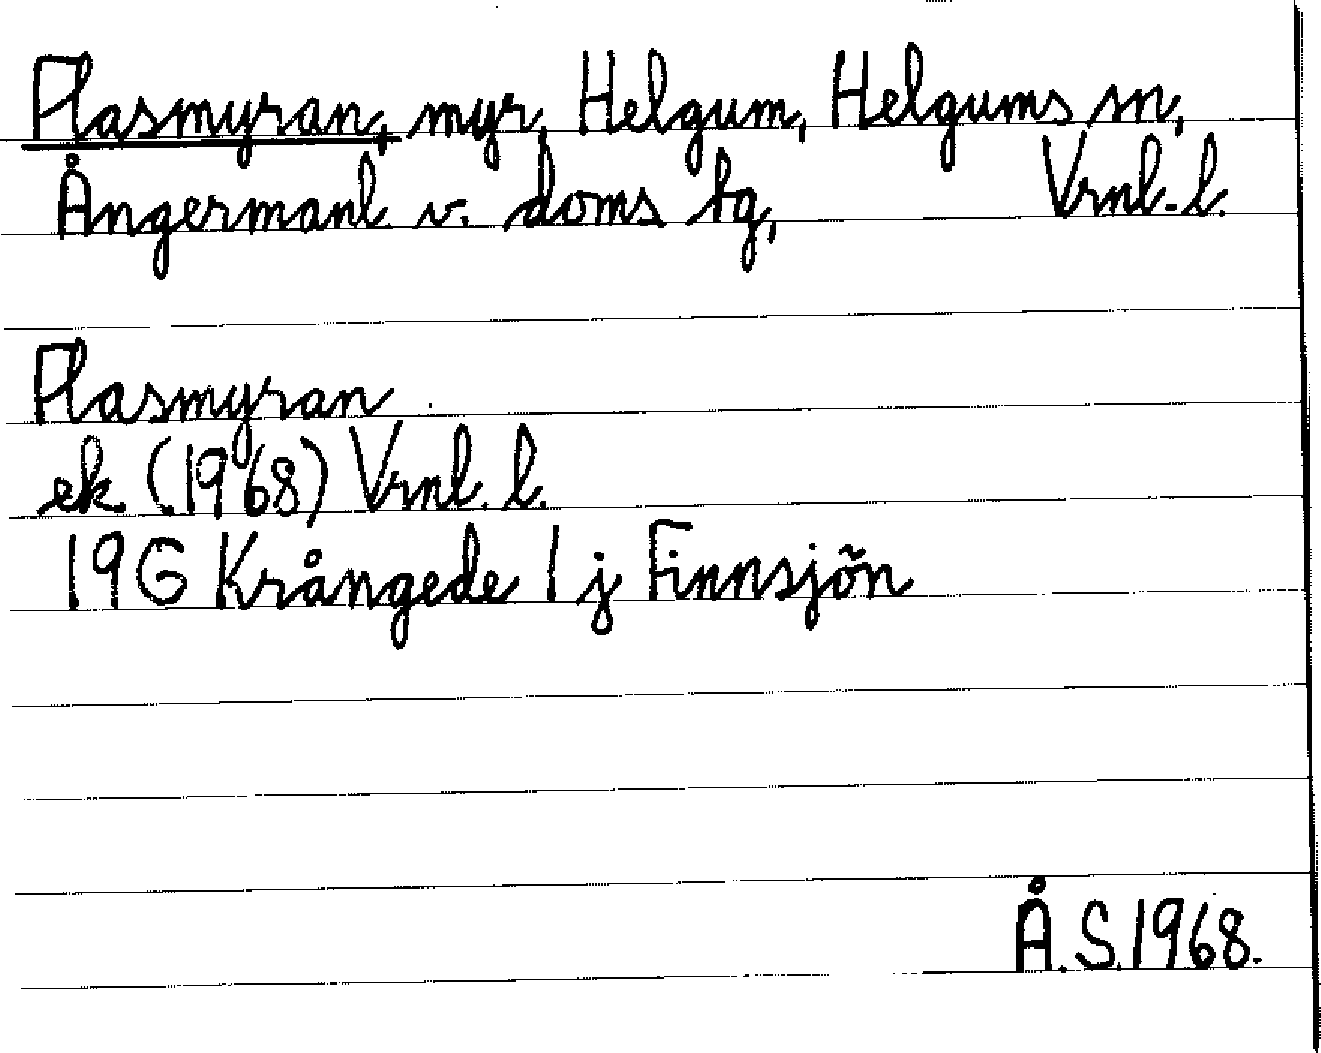 Flasmyran, myr, Helgum, Helgums sn,
Ångermanl. v. doms tg, Vrnl. l.
Flasmyran
ek. (1968) Vrnl. l.
19G Krångede 1 j Finnsjön
Å.S. 1968.